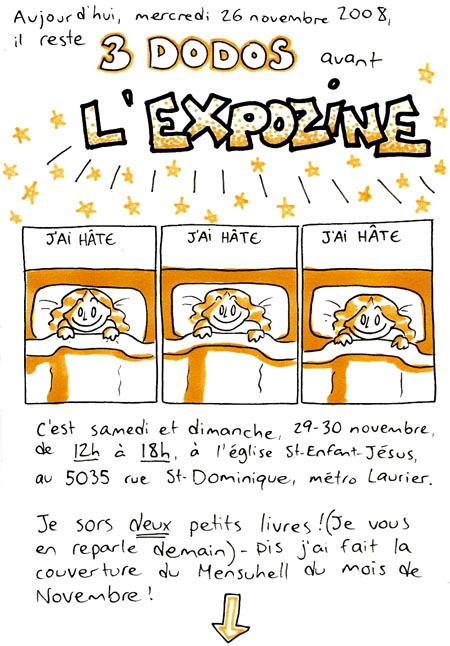 Aujourd'hui, mercredi 26 novembre 2008,
il reste
3 DODOS avant
L'EXPOZINE
J'AI HÂTE
J'AI HÂTE
J'AI HÂTE
C'est samedi et dimanche, 29-30 novembre,
de 12h à 18h, à l'église St-Enfant-Jésus,
au 5035 rue St-Dominique, métro Laurier.
Je sors deux petits livres! (Je vous
en reparle demain) - Pis j'ai fait la
couverture du Mensuhell du mois de
Novembre!